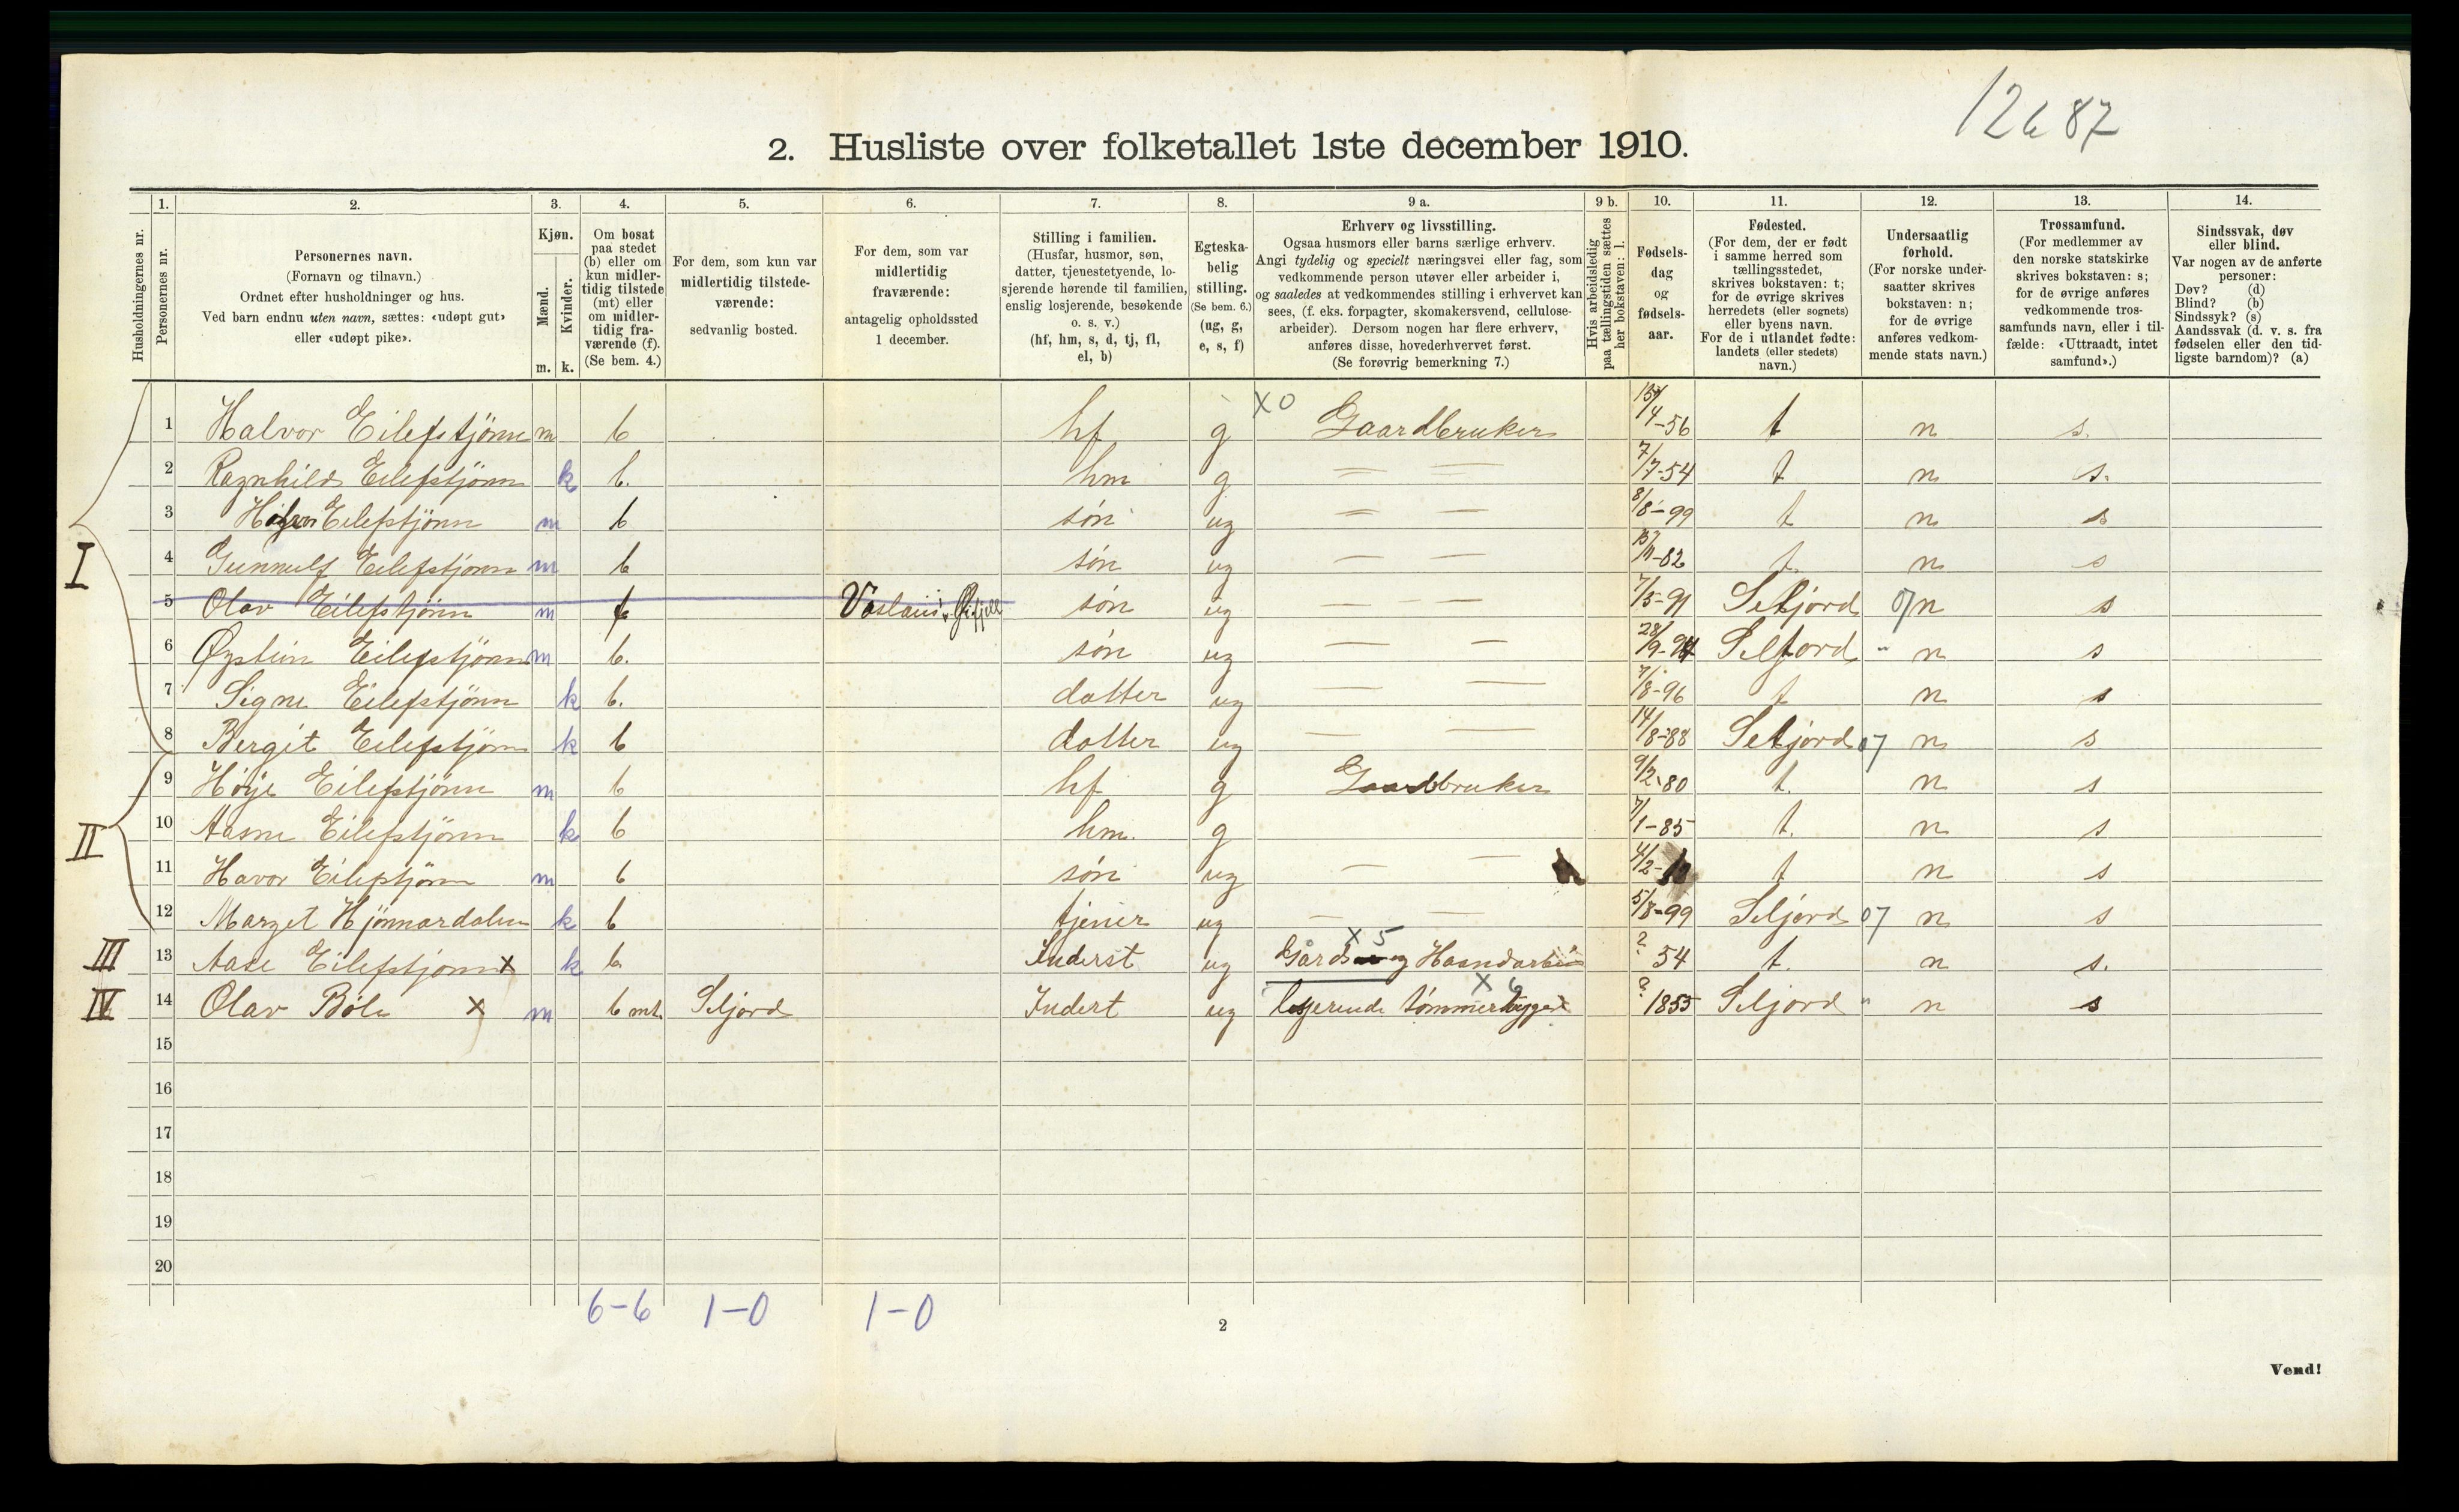 12687
2. Husliste over folketallet 1ste december 1910.
Husholdningernes nr.
1. Personernes nr.
2. Personernes navn. (Fornavn og tilnavn.) Ordnet efter husholdninger og hus. Ved barn endnu uten navn, sættes: «udøpt gut» eller «udøpt pike».
3. Kjøn. Mænd. m. Kvinder. k.
4. Om bosat paa stedet (b) eller om kun midlertidig tilstede (mt) eller om midlertidig fraværende (f). (Se bem. 4.)
5. For dem, som kun var midlertidig tilstedeværende: sedvanlig bosted.
6. For dem, som var midlertidig fraværende: antagelig opholdssted 1 december.
7. Stilling i familien. (Husfar, husmor, søn, datter, tjenestetyende, losjerende hørende til familien, enslig losjerende, besøkende o. s. v.) (hf, hm, s, d, tj, fl, el, b)
8. Egteskabelig stilling. (Se bem. 6.) (ug, g, e, s, f)
9 a. Erhverv og livsstilling. Ogsaa husmors eller barns særlige erhverv. Angi tydelig og specielt næringsvei eller fag, som vedkommende person utøver eller arbeider i, og saaledes at vedkommendes stilling i erhvervet kan sees, (f. eks. forpagter, skomakersvend, cellulosearbeider). Dersom nogen har flere erhverv, anføres disse, hovederhvervet først. (Se forøvrig bemerkning 7.)
9 b. Hvis arbeidsledig paa tællingstiden sættes her bokstaven: l.
10. Fødselsdag og fødselsaar.
11. Fødested. (For dem, der er født i samme herred som tællingsstedet, skrives bokstaven: t; for de øvrige skrives herredets (eller sognets) eller byens navn. For de i utlandet fødte: landets (eller stedets) navn.)
12. Undersaatlig forhold. (For norske undersaatter skrives bokstaven: n; for de øvrige anføres vedkommende stats navn.)
13. Trossamfund. (For medlemmer av den norske statskirke skrives bokstaven: s; for de øvrige anføres vedkommende trossamfunds navn, eller i tilfælde: «Uttraadt, intet samfund».)
14. Sindssvak, døv eller blind. Var nogen av de anførte personer: Døv? (d) Blind? (b) Sindssyk? (s) Aandssvak (d. v. s. fra fødselen eller den tidligste barndom)? (a)
I 1 Halvor Eilefstjönn m b hf g X0 Gaardbruker 4-56 t n s.
2 Ragnhild Eilefstjönn k b. hm g 7/7-54 t n s.
3 Eilefstjönn m b søn ug 8/8-99 t n s
4 Gunnulf Eilefstjönn m b søn ug 82 t. n s
5 Olav Eilefstjönn m f søn ug 7/5-91 Seljord 07 n s
6 Øystein Eilefstjönn m b. søn ug 28/9-94 Seljord " n s
7 Signe Eilefstjönn k b. datter ug 7/8-96 t n s
8 Bergit Eilefstjönn k b datter ug 14/8-88 Seljord 07 n s
II 9 Høije Eilefstjönn m b hf g Gaardbruker 9/2-80 t. n s
10 Aasne Eilefstjönn k b hm. g 7/1-85 t. n s
11 Havor Eilefstjönn m b søn ug 4/2- t n s
12 Marget Hjönnardalen k b tjener ug 5/8-99 Seljord 07 n s
III 13 Aase Eilefstjönn X k b Inderst ug X 5 Gårds og ? 54 t. n s.
IV 14 Olav Böle X m b mt. Seljord Indert ug X 6 losjerende tömmerhugger ? 1855 Seljord " n s
15
16
17
18
19
20
6-6 1-0 1-0
2
Vend!